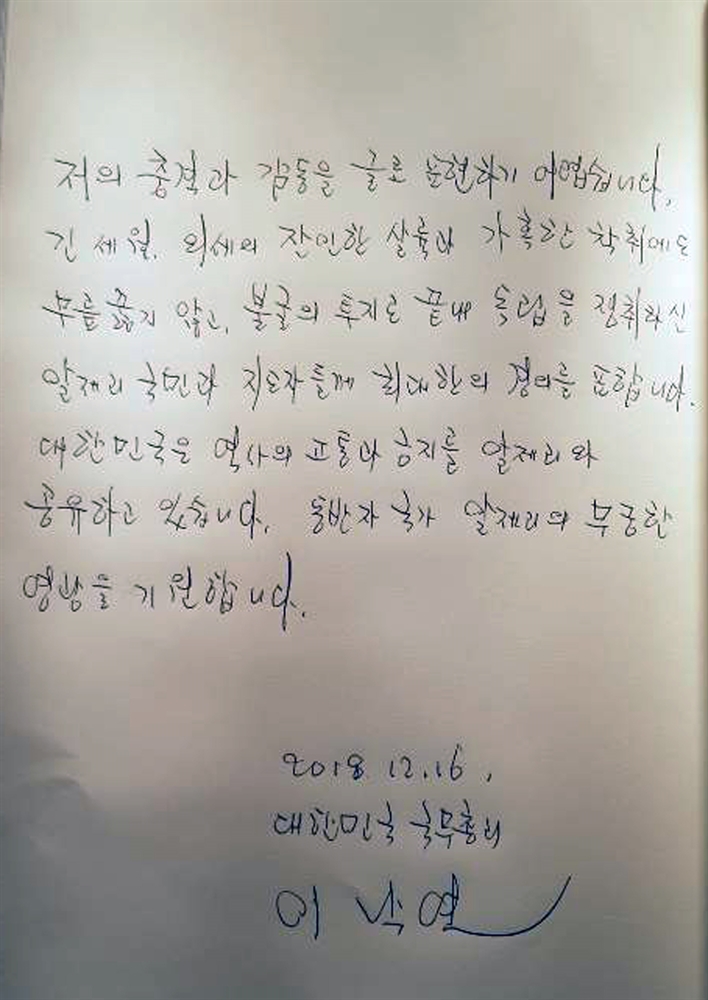 저의 충격과 감동을 글로 표현하기 어렵습니다.
긴 세월, 외세의 잔인한 살륙과 가혹한 착취에도
무릎 꿇지 않고, 불굴의 투지로 끝내 독립을 쟁취하신
알제리 국민과 지도자들께 최대한의 경의를 표합니다.
대한민국은 역사의 고통과 긍지를 알제리와
공유하고 있습니다. 동반자 국가 알제리의 무궁한
영광을 기원합니다.
2018. 12. 16.
대한민국 국무총리
이낙연